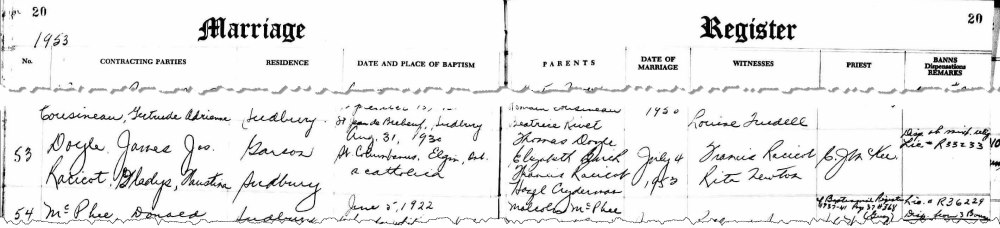 20
Marriage
Register
20
1953
No.
CONTRACTING PARTIES
RESIDENCE
DATE AND PLACE OF BAPTISM
PARENTS
DATE OF MARRIAGE
WITNESSES
PRIEST
BANNS
Dispensations
REMARKS
Cousineau, Gertrude Adrienne Sudbury
St Jean de Brebeuf, Sudbury
Romain Cousineau
Beatrice Rivet
1950
Louise Truedell
53
Doyle, James Jos. Garson
Aug. 31, 1930
St. Columbanus, Elgin, Ont.
Thomas Doyle
Elizabeth Burch
July 4
1953
Francis Racicot
Rita Newton
C. J. McKee
Disp. ob mixt. relig.
Lic. # R33233
Racicot, Gladys, Faustina Sudbury
a catholica
Francis Racicot
Hazel Crydermas
54 McPhee Donald Sudbury
June 5, 1922
Malcolm McPhee
Lic. # R36229